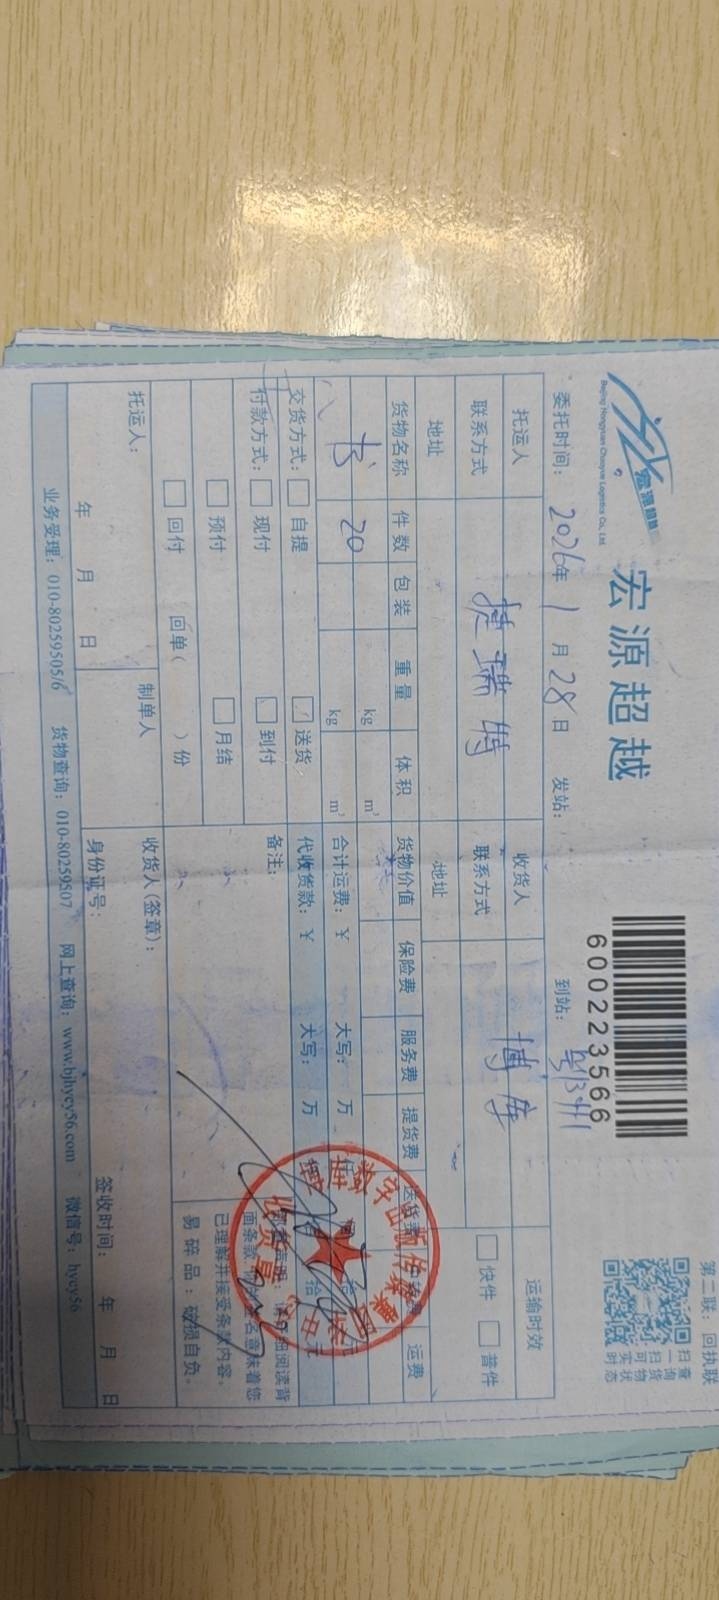 宏源超越
Beijing Hongyuan Chaoyue Logistics Co., Ltd.
宏源超越
600223566
第二联：回执联
扫一扫可实时
查询货物状态
委托时间：2026年1月28日 发站： 到站：
托运人 捷瑞特 收货人 博库 运输时效
联系方式 联系方式 快件 普件
地址 地址
货物名称 件数 包装 重量 体积 货物价值 保险费 服务费 提货费 送货费 运费
kg m³
书 20 kg m³ 合计运费：￥ 大写： 万
交货方式： 自提 送货 代收货款：￥ 大写： 万 拾 元
付款方式： 现付 到付 备注：
预付 月结
回付 回单( )份
面条款
已理解并接受条款内容。
易碎品：破损自负。
托运人： 制单人 收货人(签章)：
年 月 日 身份证号： 签收时间： 年 月 日
业务受理：010-80259505/6 货物查询：010-80259507 网上查询：www.bjhycy56.com 微信号：hycy56